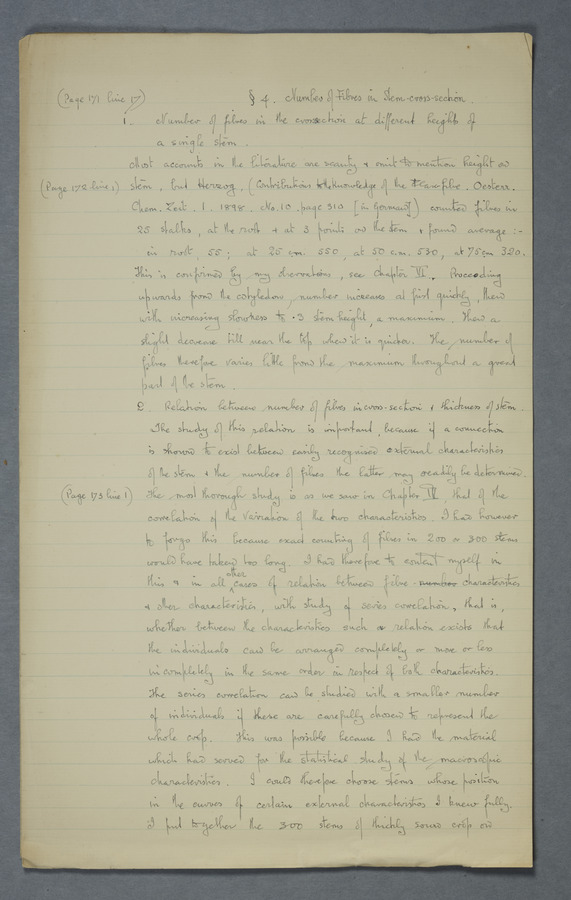 (Page 171 line 17) § 4. Number of Fibres in Stem-cross-section.
1. Number of fibres in the crossection at different heights of
a single stem.
Most accounts in the literature are scanty & omit to mention height on
(Page 172 line 1) stem, but Herzog, (Contributions to the knowledge of the Flax fibre. Oesterr.
Chem. Zeit. 1. 1898. No. 10 page 310 [in German]) counted fibres in
25 stalks, at the root & at 3 points on the stem & found average :-
in root, 55; at 25 cm. 550, at 50 c.m. 530, at 75 cm 320.
This is confirmed by my observations, see Chapter VI. Proceeding
upwards from the cotyledons, number increases at first quickly, then
with increasing slowness to .3 stem height, a maximum. Then a
slight decrease till near the top when it is quicker. The number of
fibres therefore varies little from the maximum throughout a great
part of the stem.
2. Relation between number of fibres in cross-section & thickness of stem.
The study of this relation is important, because if a connection
is shown to exist between easily recognised external characteristics
of the stem & the number of fibres the latter may readily be determined.
(Page 173 line 1) The most thorough study is as we saw in Chapter III, that of the
correlation of the variation of the two characteristics. I had however
to forgo this because exact counting of fibres in 200 or 300 stems
would have taken too long. I had therefore to content myself in
this & in all other cases of relation between fibre - number characteristics
& other characteristics, with study of series correlation, that is,
whether between the characteristics such a relation exists that
the individuals can be arranged completely or more or less
incompletely in the same order in respect of both characteristics.
The series correlation can be studied with a smaller number
of individuals if these are carefully chosen to represent the
whole crop. This was possible because I had the material
which had served for the statistical study of the macroscopic
characteristics. I could therefore choose stems whose position
in the curves of certain external characteristics I knew fully.
I put together the 300 stems of thickly sown crop on